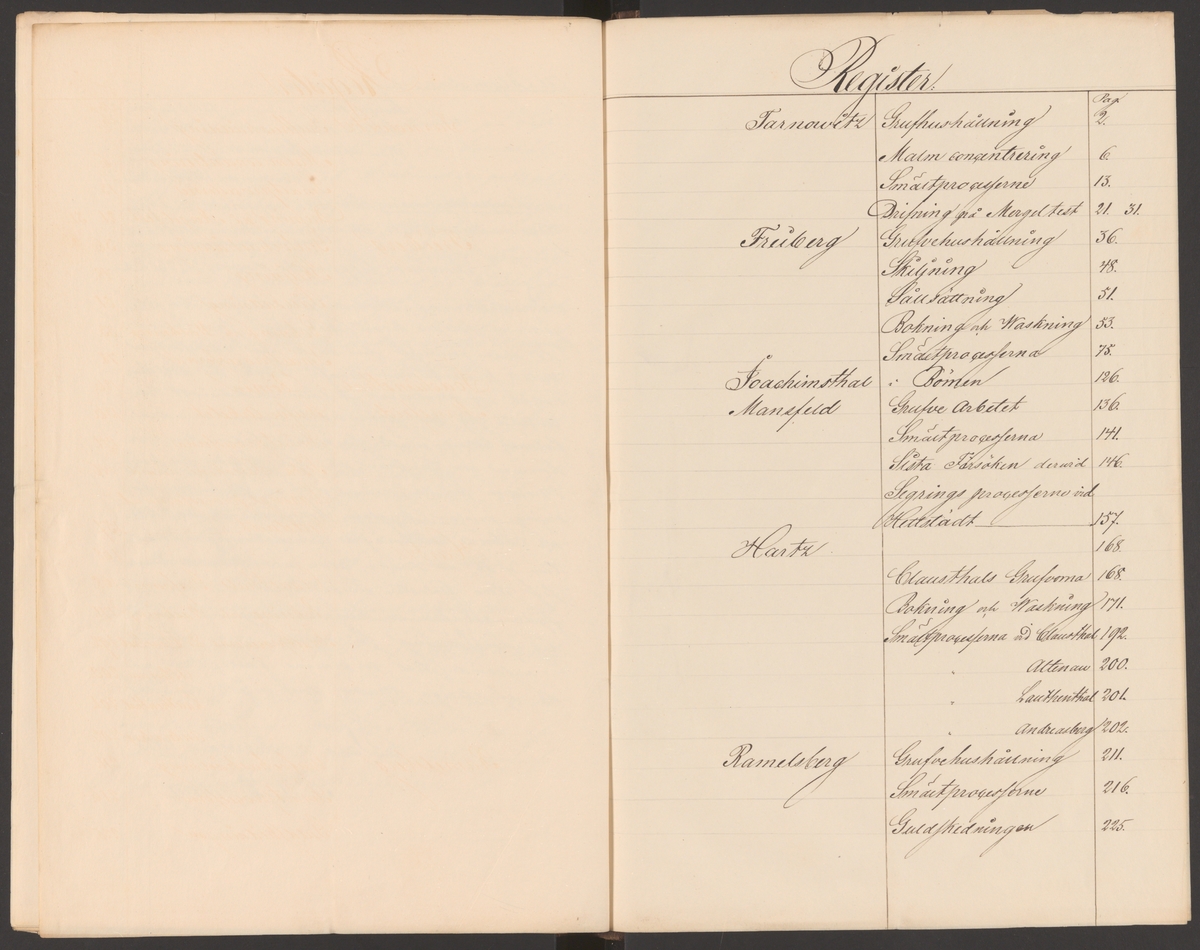 Register.
Pag.
Tarnowitz Grufhushållning 2.
Malm concentrering 6.
Smältprocesserne 13.
Drifning på Mergeltest 21. 31.
Freiberg Grufvehushållning 36.
Skiljning 48.
Sållsättning 51.
Bokning och Waskning 53.
Smältprocesserna 75.
Joachimsthal i Bömen 126.
Mansfeld Grufve Arbetet 136.
Smältprocesserna 141.
Sista Försöken dervid 146.
Segrings processerne vid
Hettstädt 157.
Hartz 168.
Clausthals Grufvorna 168.
Bokning och Waskning 171.
Smältprocesserna vid Clausthal 192.
" Altenau 200.
" Lauthenthal 201.
" Andreasberg 202.
Ramelsberg Grufvehushållning 211.
Smältprocesserne 216.
Guldskedningen 225.